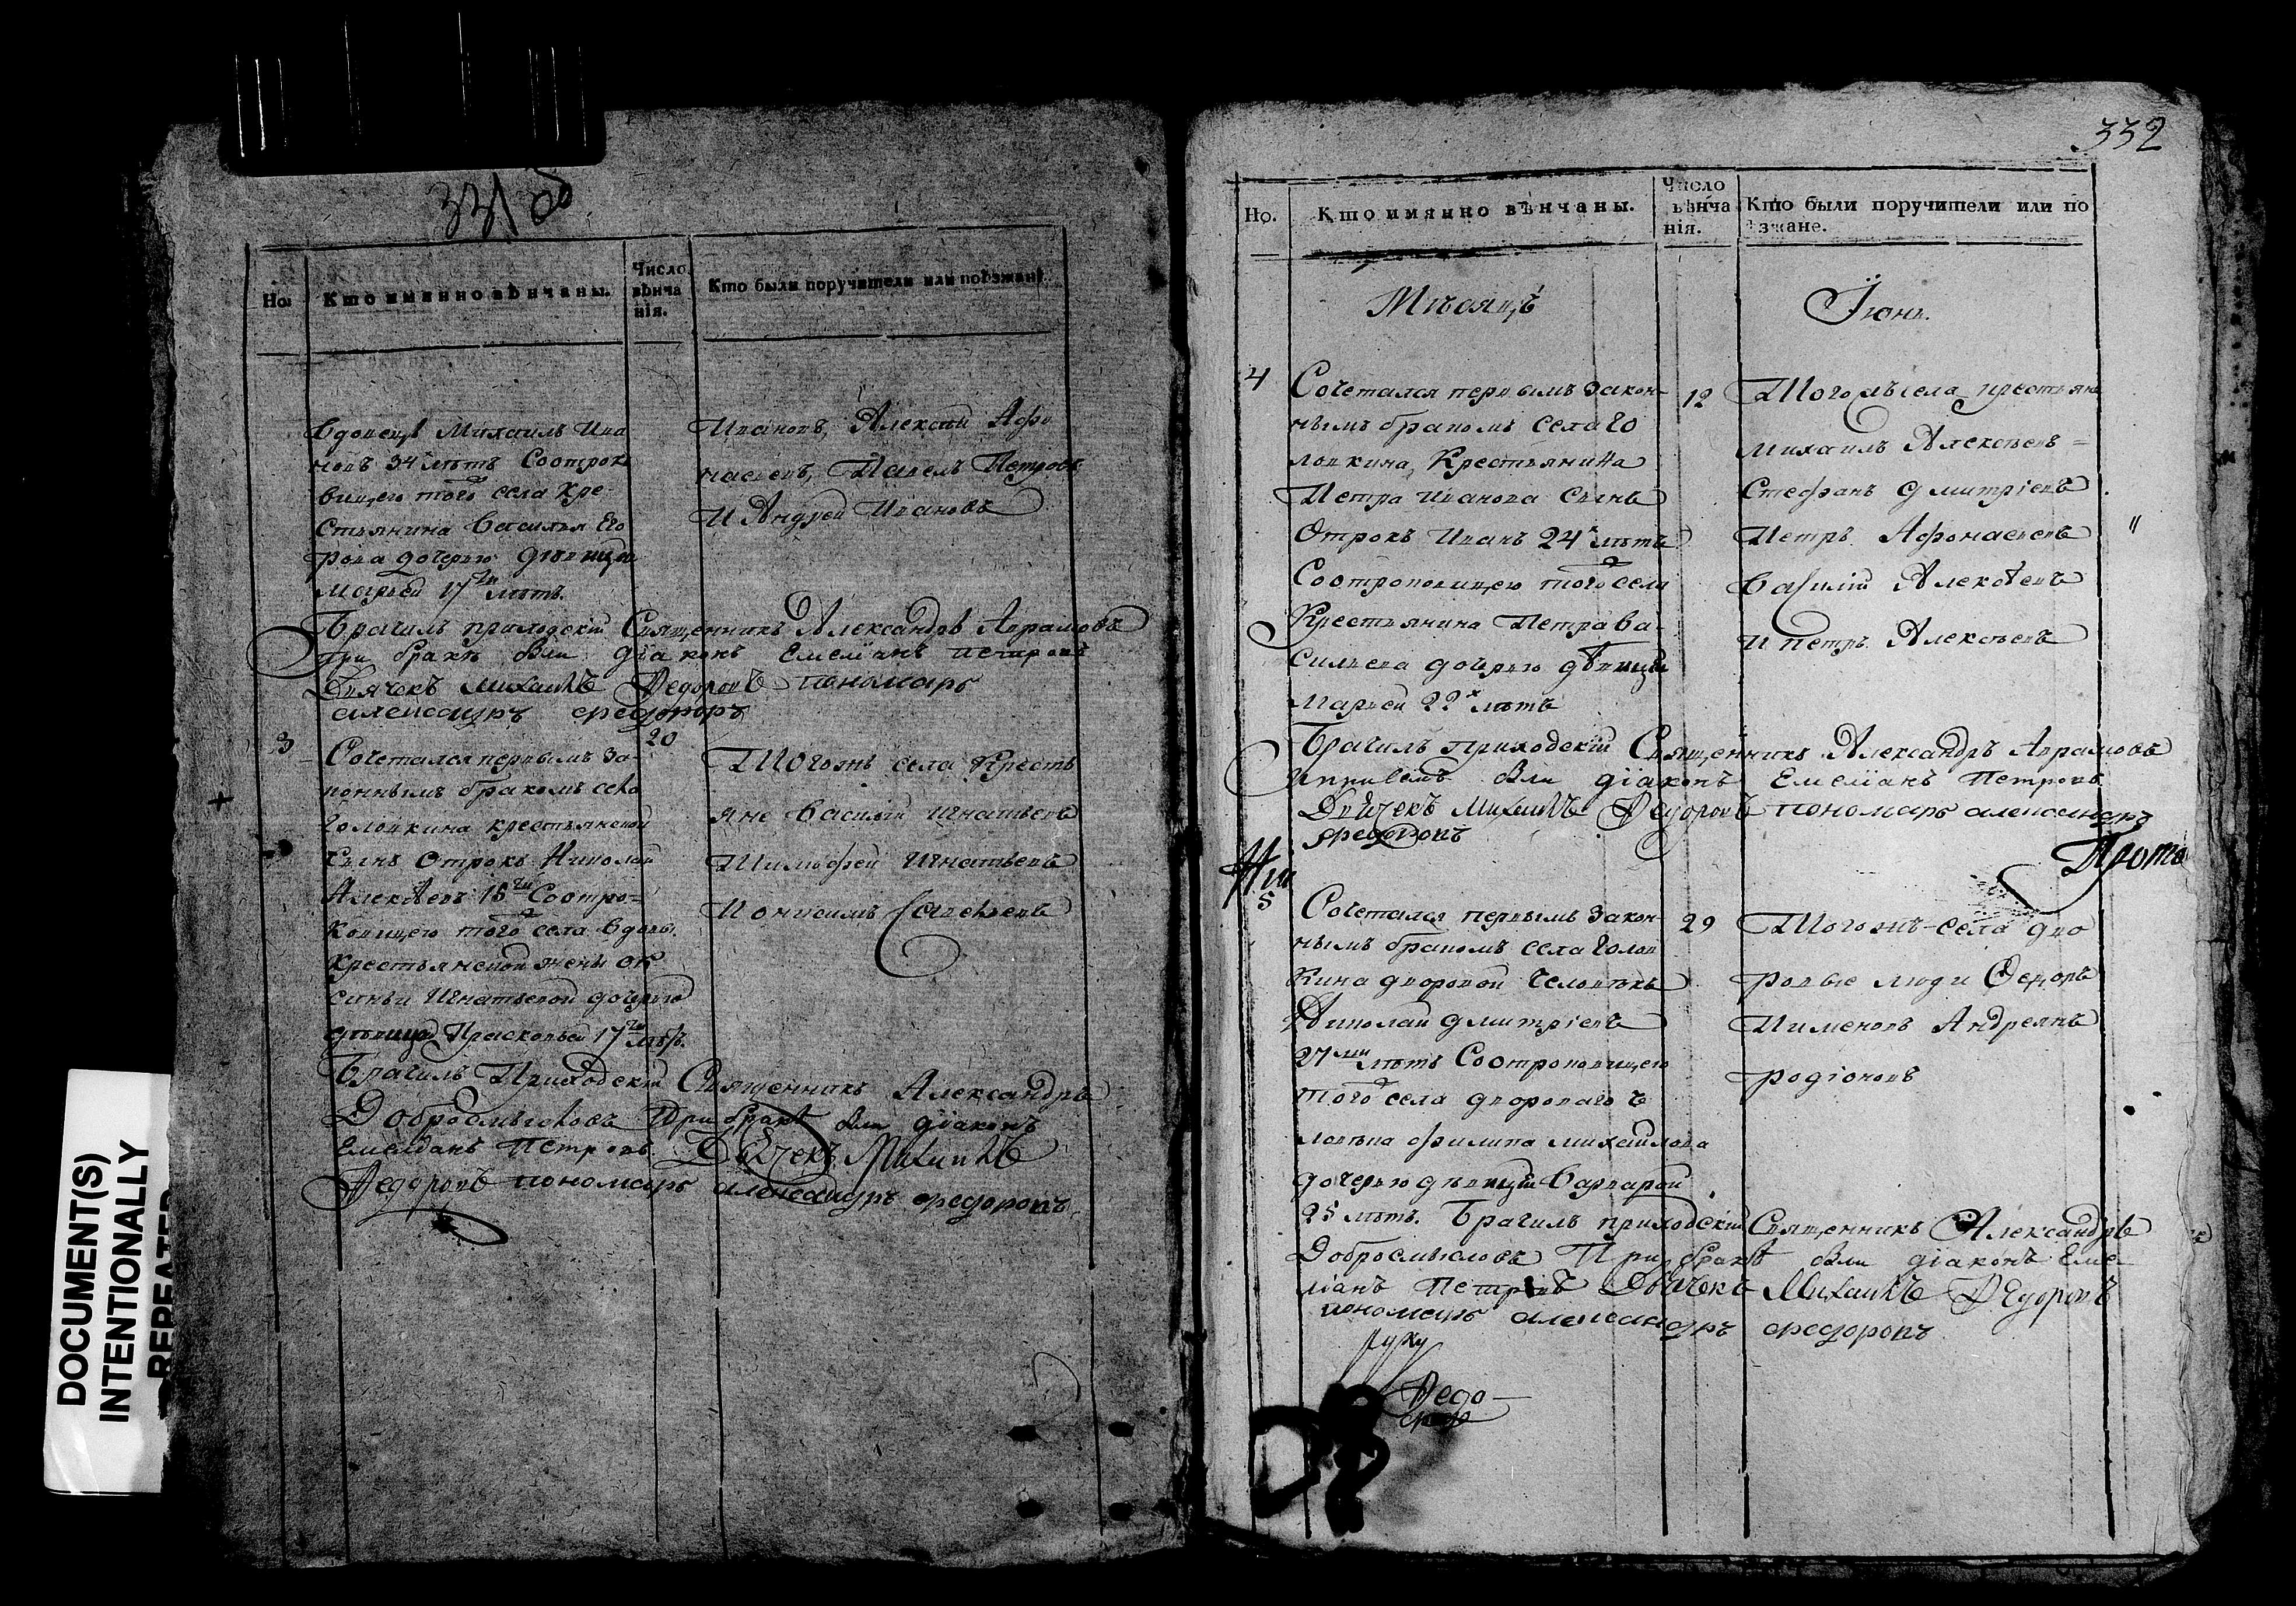 331 об
Но:
Кто имянно вѣнчаны.
Число
вѣнча
нія.
Кто были поручители или поѣзжане.
Вдовецъ Михаилъ Ива
новъ 34 лѣтъ Соотроко
вицею того села Кре-
стьянина Василья Его
рова дочерью дѣвицей
17ти лѣтъ.
Ивановъ, Алексѣй Афо
насьевъ, Павелъ Петровъ
И Андрей Ивановъ
Брачилъ приходскій Священникъ Александръ Аврамовъ
при бракѣ были діаконъ Емеліанъ Петровъ
Дьячекъ Михаилъ Федоровъ пономарь
александръ федоровъ
3
20
Сочетался первымъ за-
коннымъ бракомъ села
Головкина крестьянской
Сынъ отрокъ Николай
Алексѣевъ 18ти Соотро-
ковицею того села вдовы
крестьянской жены ок
синьи Игнатьевой дочерью
дѣвицей Прасковьей 17ти лѣтъ.
Тогожъ села Кресть
яне Василій Игнатьевъ
Тимофей Игнатьевъ
И Савельевъ
Брачилъ Приходскій Священникъ Александръ
Добросмысловъ При бракѣ были діаконъ
Емеліанъ Петровъ Дьячекъ Михаилъ
Федоровъ пономарь александръ федоровъ
DOCUMENT(S)
INTENTIONALLY
REPEATED
332
Но.
Кто имянно вѣнчаны.
Число
вѣнча
нія.
Кто были поручители или по
ѣзжане.
Мѣсяцъ
Іюнь.
4
12
Сочетался первымъ закон-
нымъ бракомъ села Го
ловкина, Крестьянина
Петра Иванова Сынъ
Отрокъ Иванъ 24х лѣтъ
Соотроковицею того села
Крестьянина Петра Ва-
сильева дочерью дѣвицей
Марьей 22х лѣтъ
Тогожъ села крестьяне
Михаилъ Алексѣевъ
Стефанъ Дмитріевъ
Петръ Афонасьевъ
Василій Алексѣевъ
И петръ Алексѣевъ
Брачилъ приходскій Священникъ Александръ Аврамовъ
были діаконъ Емеліанъ Петровъ
Дьячекъ Михаилъ Федоровъ пономарь александръ
федоровъ
Прото
5
29
Сочетался первымъ закон
нымъ бракомъ села Голов
кина дворовой человѣкъ
Николай Дмитріевъ
27ми лѣтъ Соотроковицею
того села двороваго че
ловѣка филипа михайлова
дочерью дѣвицей Варварой
25 лѣтъ. Брачилъ приходскій Священникъ Александръ
Тогожъ села дво
ровые люди Федоръ
Пименовъ Андреянъ
родіоновъ
Добросмысловъ При бракѣ были діаконъ Еме
ліанъ Петровъ Дьячекъ Михаилъ Федоровъ
пономарь александръ федоровъ
руку
Федо-
федо